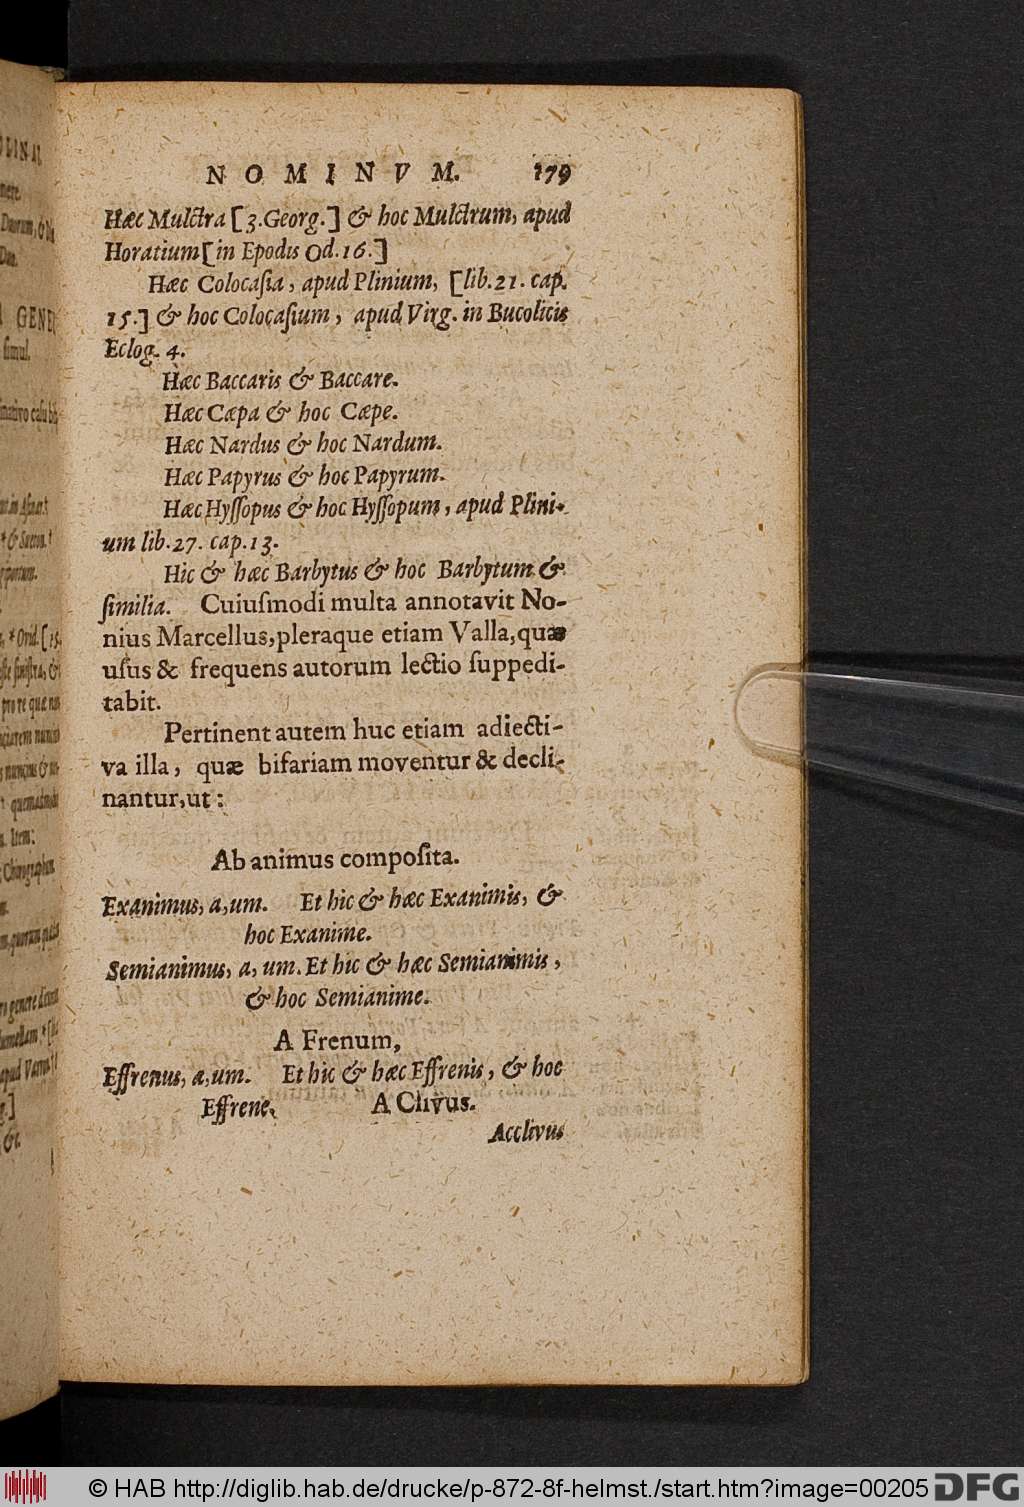 NOMINVM. 179
Hæc Mulctra [3.Georg.] & hoc Mulctrum, apud
Horatium [in Epodis Od.16.]
Hæc Colocaſia, apud Plinium, [lib.21. cap.
15.] & hoc Colocaſium, apud Virg. in Bucolicis
Eclog. 4.
Hæc Baccaris & Baccare.
Hæc Cæpa & hoc Cæpe.
Hæc Nardus & hoc Nardum.
Hæc Papyrus & hoc Papyrum.
Hæc Hyſſopus & hoc Hyſſopum, apud Plini-
um lib.27. cap.13.
Hic & hæc Barbytus & hoc Barbytum &
ſimilia. Cuiuſmodi multa annotavit No-
nius Marcellus, pleraque etiam Valla, quæ
uſus & frequens autorum lectio ſuppedi-
tabit.
Pertinent autem huc etiam adiecti-
va illa, quæ bifariam moventur & decli-
nantur, ut:
Ab animus compoſita.
Exanimus, a, um. Et hic & hæc Exanimis, &
hoc Exanime.
Semianimus, a, um. Et hic & hæc Semianimis,
& hoc Semianime.
A Frenum,
Effrenus, a, um. Et hic & hæc Effrenis, & hoc
Effrene. A Clivus.
Acclivus
© HAB http://diglib.hab.de/drucke/p-872-8f-helmst./start.htm?image=00205 DFG